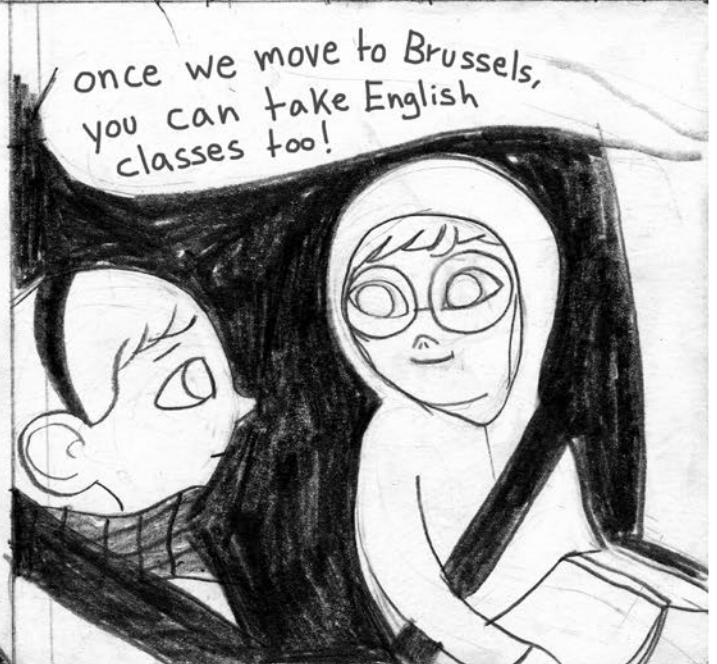 once we move to Brussels,
you can take English
classes too!